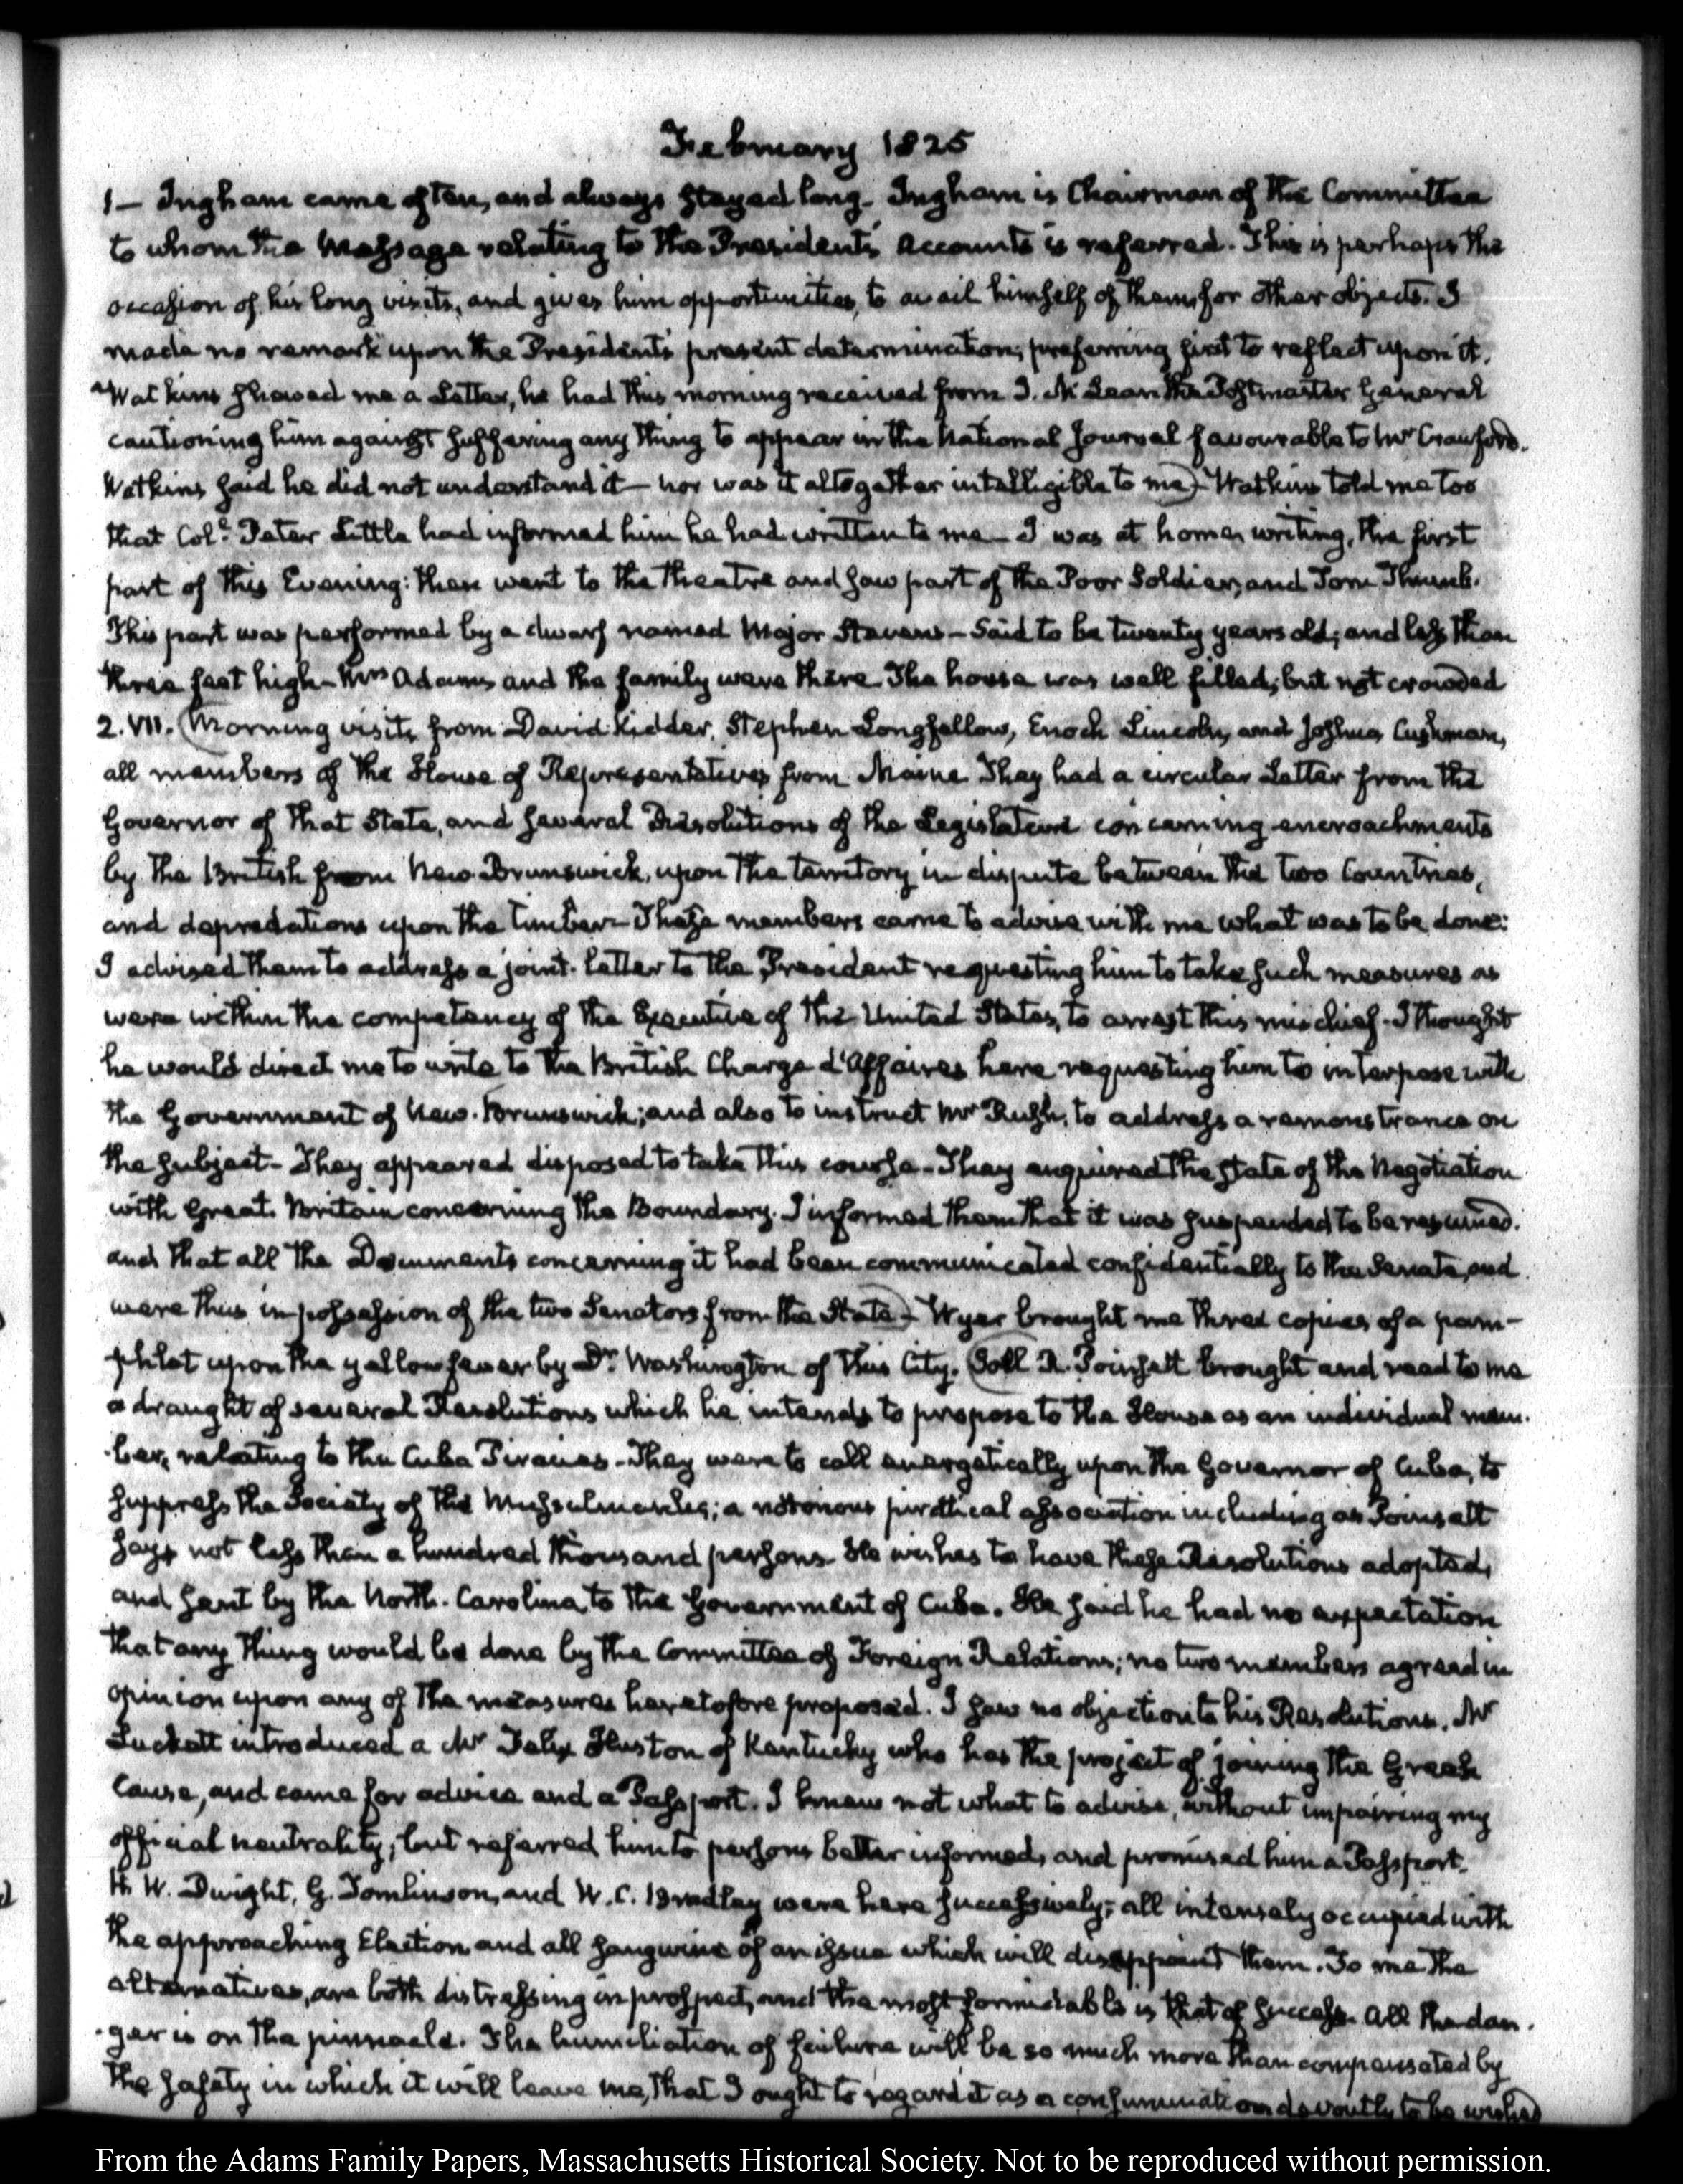 February 1825
1— Ingham came often, and always stayed long. Ingham is Chairman of the Committee
to whom the Message relating to the President's Accounts is referred. This is perhaps the
occasion of his long visits, and gives him opportunities, to avail himself of them for other objects. I
made no remark upon the President's present determination; preferring first to reflect upon it.
Watkins showed me a Letter, he had this morning received from J. McLean the Postmaster General
cautioning him against suffering any thing to appear in the National Journal favourable to Mr Crawford.
Watkins said he did not understand it— nor was it altogether intelligible to me) Watkins told me too
that Coll. Peter Little had informed him he had written to me— I was at home, writing, the first
part of this Evening: then went to the theatre and saw part of the Poor Soldier, and Tom Thumb.
This part was performed by a dwarf named Major Stevens— Said to be twenty years old; and less than
three feet high— Mrs Adams and the family were there. The house was well filled; but not crowded
2. VII. (Morning visits from David Kidder, Stephen Longfellow, Enoch Lincoln, and Joshua Cushman,
all members of the House of Representatives from Maine. They had a circular Letter from the
Governor of that State, and several Resolutions of the Legislature concerning encroachments
by the British from New-Brunswick, upon the territory in dispute between the two Countries,
and depredations upon the timber— These members came to advise with me what was to be done:
I advised them to address a joint letter to the President requesting him to take such measures as
were within the competency of the Executive of the United States, to arrest this mischief. I thought
he would direct me to write to the British Charge d'Affaires here requesting him to interpose with
the Government of New-Brunswick; and also to instruct Mr Rush, to address a remonstrance on
the subject— They appeared disposed to take this course— They enquired the state of the Negotiation
with Great-Britain concerning the Boundary. I informed them that it was suspended to be resumed.
and that all the Documents concerning it had been communicated confidentially to the Senate, and
were thus in possession of the two Senators from the State) Wyer brought me three copies of a pam-
phlet upon the yellow fever by Dr. Washington of this City. (Joel R. Poinsett brought and read to me
a draught of several Resolutions which he intends to propose to the House as an individual mem-
-ber, relating to the Cuba Piracies— They were to call energetically upon the Governor of Cuba, to
suppress the Society of the Mussulmen; a notorious piratical association including as Poinsett
says not less than a hundred thousand persons. He wishes to have these Resolutions adopted,
and sent by the North-Carolina, to the Government of Cuba. He said he had no expectation
that any thing would be done by the Committee of Foreign Relations; no two members agreed in
opinion upon any of the measures heretofore proposed. I saw no objection to his Resolutions. Mr
Luckett introduced a Mr Felix Huston of Kentucky who has the project of joining the Greek
Cause, and came for advice and a Passport. I knew not what to advise, without impairing my
official neutrality; but referred him to persons better informed, and promised him a Passport.
H. W. Dwight, G. Tomlinson, and W. C. Bradley were here successively; all intensely occupied with
the approaching Election and all sanguine of an issue which will disappoint them. To me the
alternatives, are both distressing in prospect, and the most formidable is that of success. All the dan-
-ger is on the pinnacle. The humiliation of failure will be so much more than compensated by
the safety in which it will leave me, that I ought to regard it as a consummation devoutly to be wished)
From the Adams Family Papers, Massachusetts Historical Society. Not to be reproduced without permission.